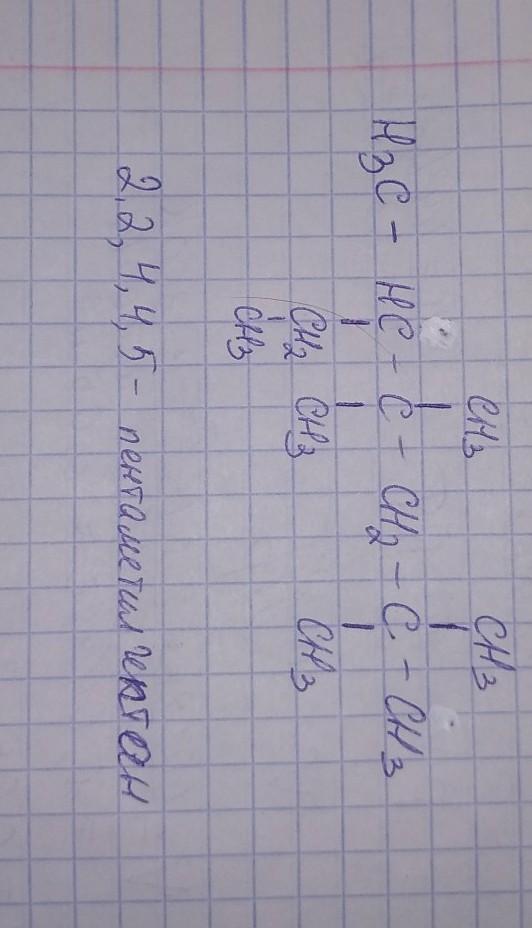 CH3 CH3
H3C - HC - C - CH2 - C - CH3
CH2 CH3 CH3
CH3
2,2,4,4,5 - пентаметилгептан